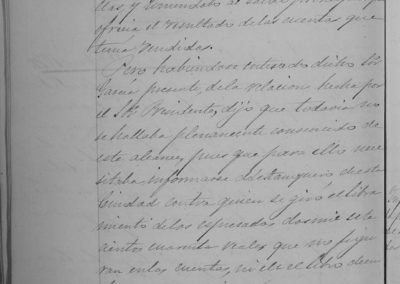 das, y
ofrecia el resultado de las cuentas que
tenia rendidas.
Pero habiendose enterado dicho Sor
Garcia presente, de la relacion hecha por
el Sor Presidente, dijo que todavia no
se hallaba plenamente convencido de
este alcance, pues que para ello nece
sitaba informarse del estanquero de esta
Ciudad contra quien se giró el libra
miento de los espresados dosmil sete
cientos cuarenta reales que no figu
ran en las cuentas, ni en el libro de